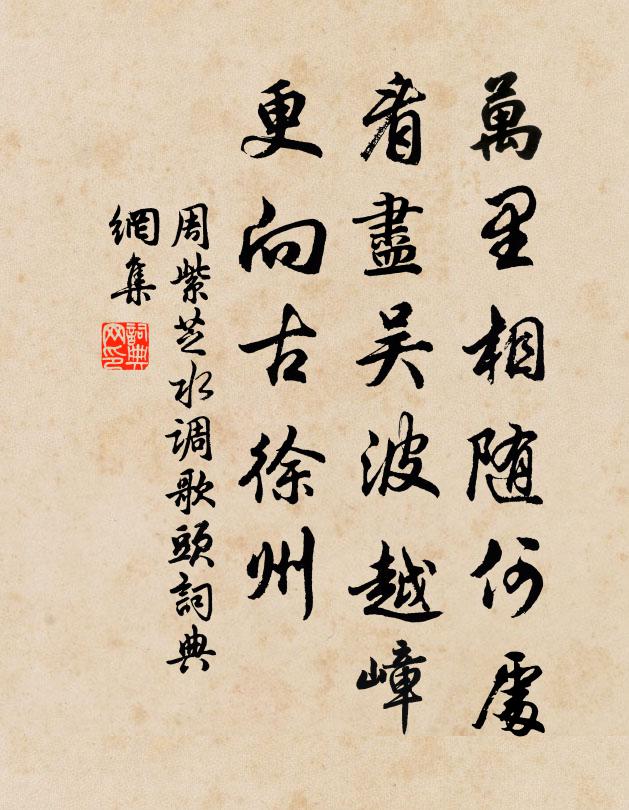 萬里相随何處
看盡吴波越嶂
更向古徐州
周紫芝水调歌頭詞典
網集
詞典网印